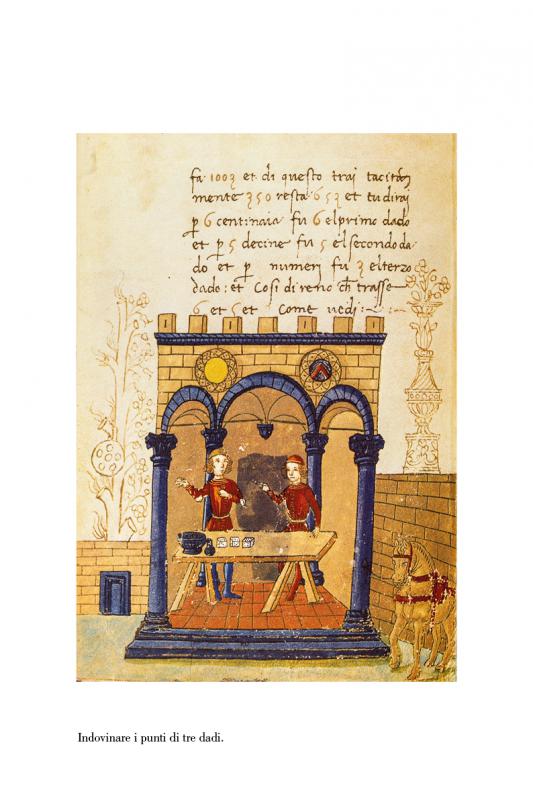 fa 1003 et di questo trai tacitam
mente 350 resta 653 et tu dirai
p 6 centinaia fu 6 el primo dado
et p 5 decine fu 5 el secondo da
do et p numeri fu 3 el terzo
dado: et Cosi direno ch trasse
6 et 5 et come uedi:
Indovinare i punti di tre dadi.